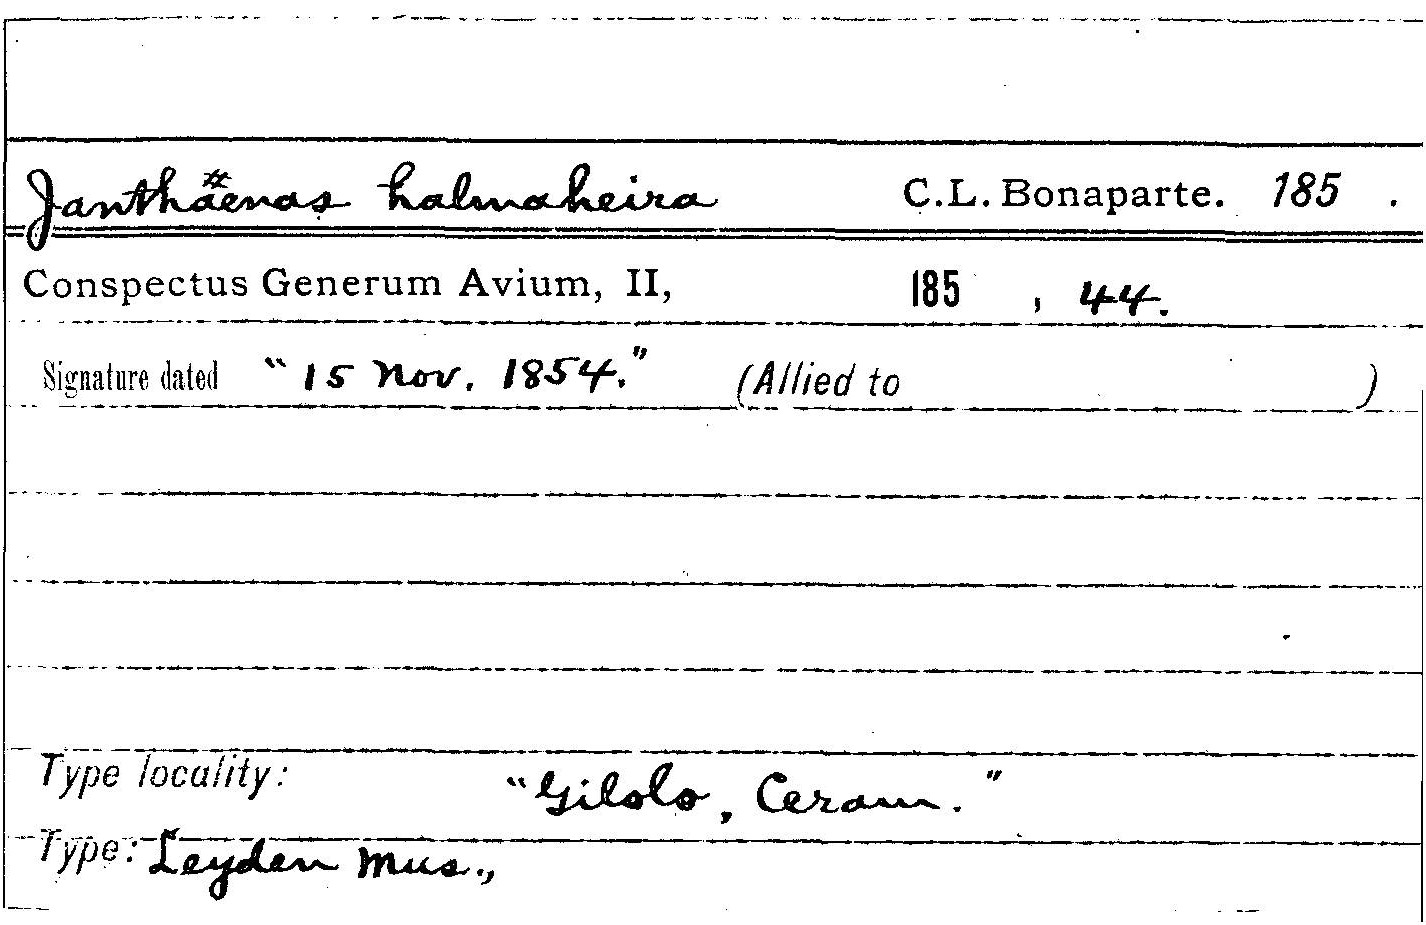 Janthäenas halmaheira C.L. Bonaparte. 185 .
Conspectus Generum Avium, II, 185 , 44.
Signature dated "15 Nov. 1854." (Allied to )
Type locality: "Gilolo, Ceram."
Type: Leyden Mus.,